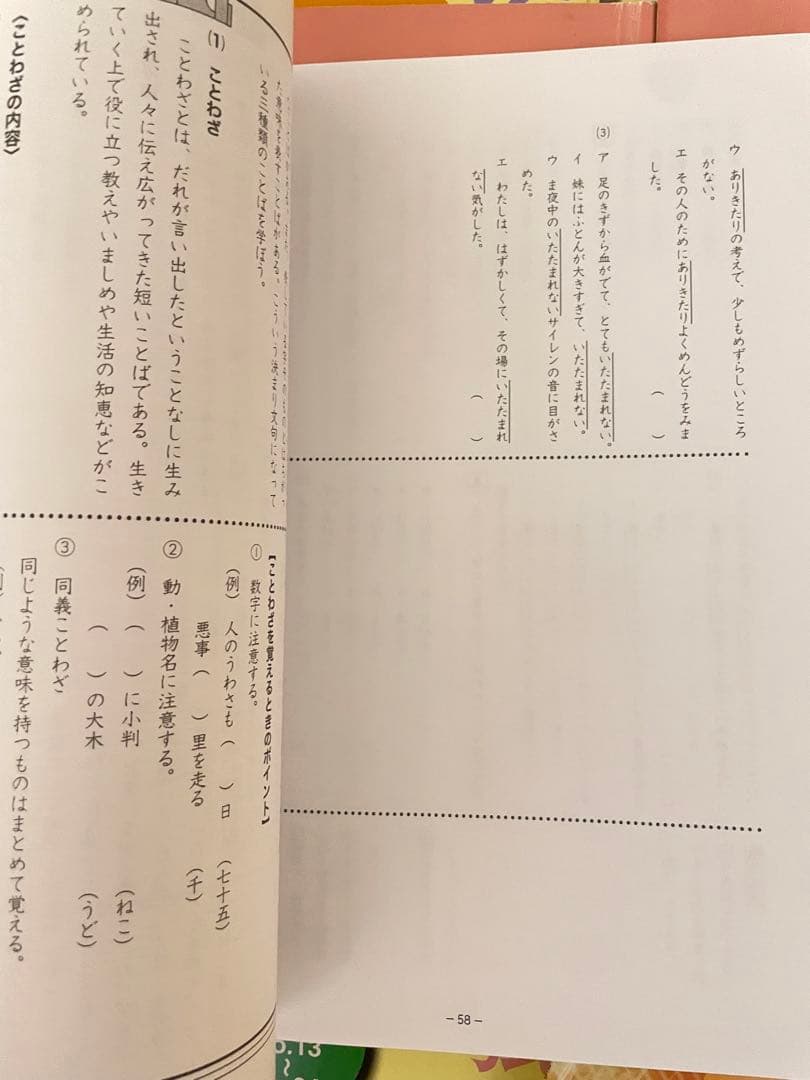 ウ ありきたりの考えで、少しもめずらしいところ
がない。
エ その人のためにありきたりよくめんどうをみま
した。
( )
(3)
ア 足のきずから血がでて、とてもいたたまれない。
イ 妹にはふとんが大きすぎて、いたたまれない。
ウ ま夜中のいたたまれないサイレンの音に目がさ
めた。
エ わたしは、はずかしくて、その場にいたたまれ
ない気がした。
( )
―58―
た意味を表すことばがある。こういう決まり文句になって
いる三種類のことばを学ぼう。
(1) ことわざ
ことわざとは、だれが言い出したということなしに生み
出され、人々に伝え広がってきた短いことばである。生き
ていく上で役に立つ教えやいましめや生活の知恵などがこ
められている。
〈ことわざの内容〉
【ことわざを覚えるときのポイント】
① 数字に注意する。
(例) 人のうわさも( )日 (七十五)
悪事( )里を走る (千)
② 動・植物名に注意する。
(例) ( )に小判 (ねこ)
( )の大木 (うど)
③ 同義ことわざ
同じような意味を持つものはまとめて覚える。